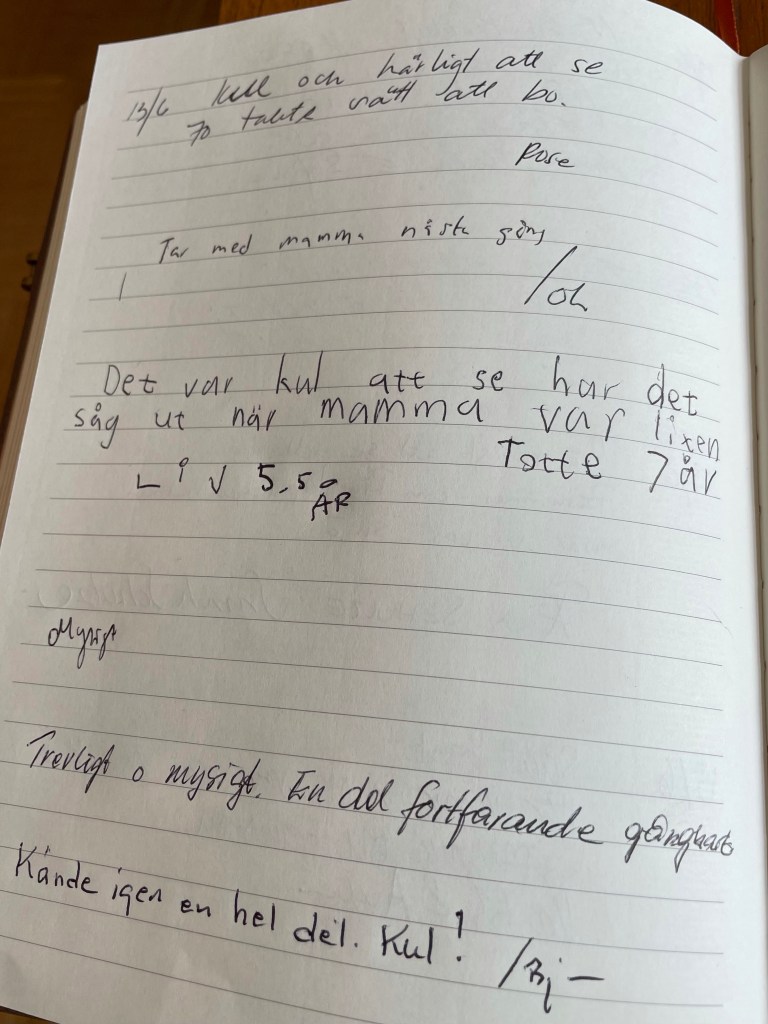 13/6 Kull och härligt att se
70 talets sätt att bo.
Rose
Tar med mamma nästa gång
/OL
Det var kul att se har det
såg ut när mamma var liten
Totte 7 år
Liv 5,5
ÅR
Mysigt
Trevligt o mysigt. En del fortfarande gångbart
Kände igen en hel del. Kul!